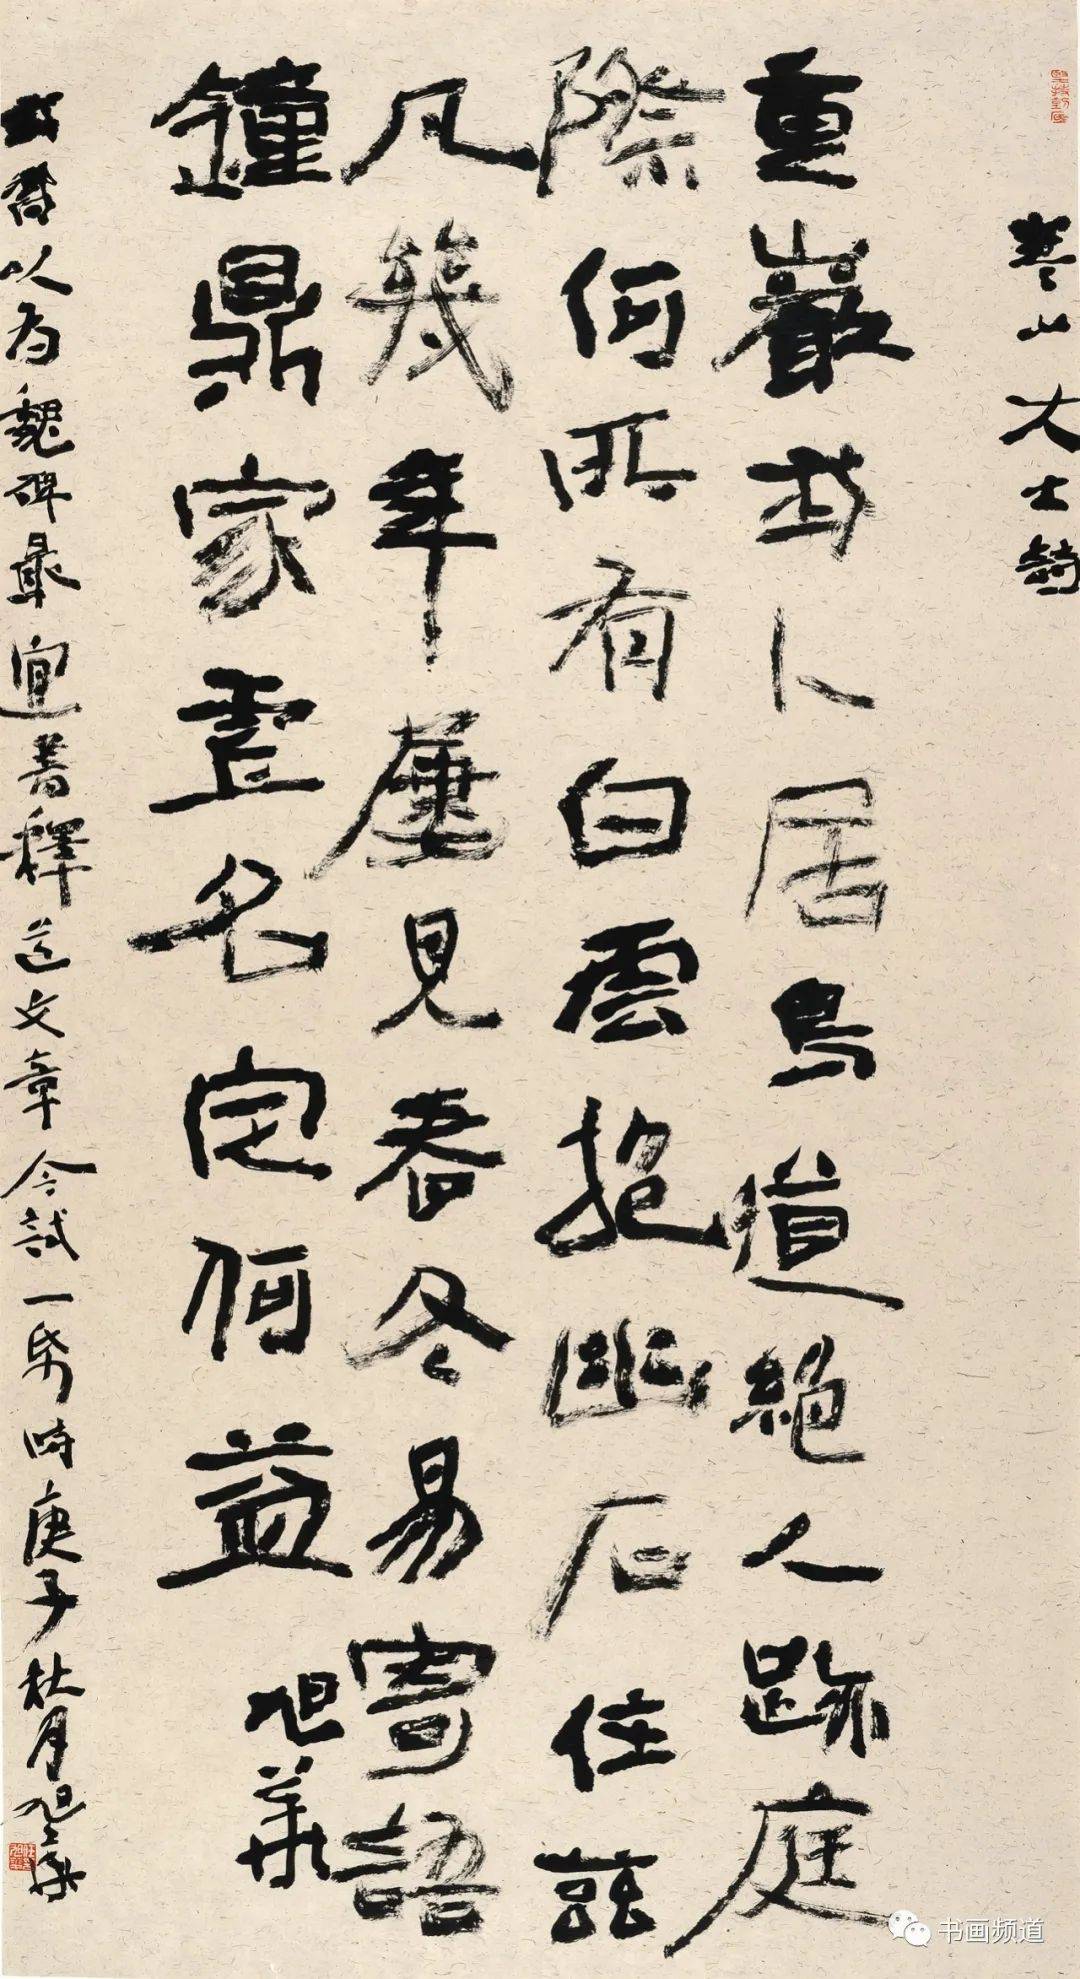 寒山大士詩
重巖我卜居鳥道絕人跡庭
際何所有白雲抱幽石住茲
凡幾年屢見春冬易寄語
鐘鼎家虛名定何益 旭華
我嘗以為魏碑最宜書釋道文章今試一帋時庚子月旭華
书画频道